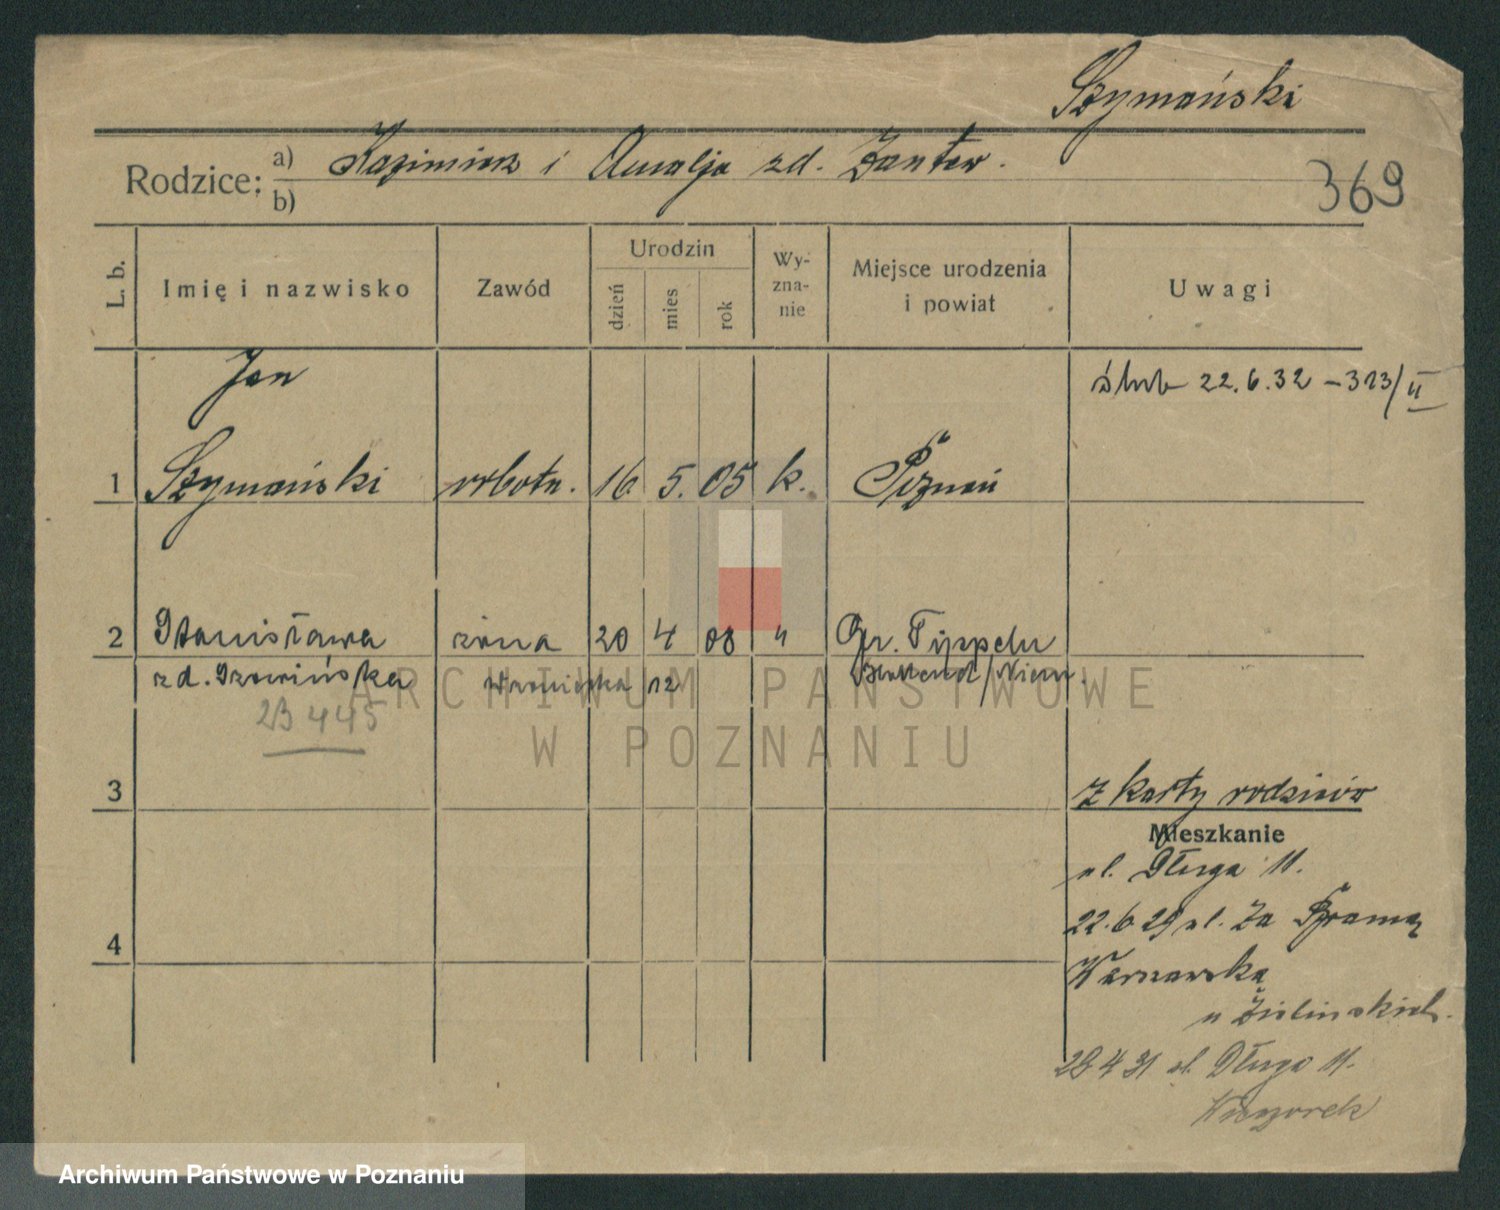 Szymański
Rodzice: a) Kazimierz i Amalja zd. Zantow.
b)
369
L. b. Imię i nazwisko Zawód Urodzin dzień mies rok Wy-zna-nie Miejsce urodzenia i powiat Uwagi
Jan
ślub 22.6.32 – 313/II
1 Szymański robotn. 16. 5. 05 k. Poznań
2 Stanisława żona 20 4 08 " Gr. Tippeln
zd. Szewińska Wroniecka 12 Holland/Niem.
23445
3
z karty rodziców
Mieszkanie
ul. Długa 11.
22.6 29 ul. Za Bramą
4
Warszawską
u Zielinskich.
28 4 31 ul. Długa 11.
Wieczorek
ARCHIWUM PAŃSTWOWE
W POZNANIU
Archiwum Państwowe w Poznaniu